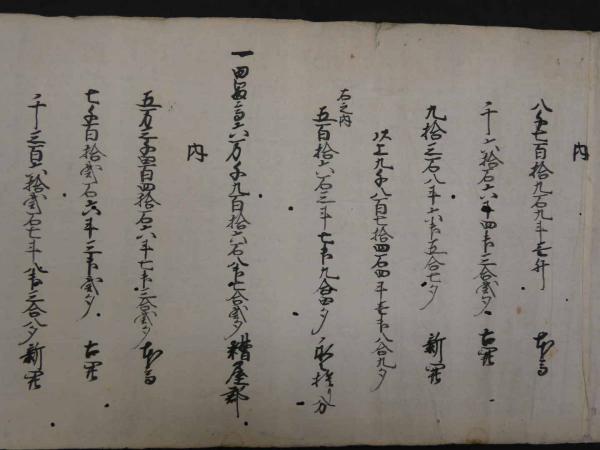 内
八千七百拾九石九斗壱升 本高
千六拾石六斗四升三合弐夕 古開
九拾三石八斗六升五合七夕 新開
以上九千八百七拾四石四斗壱升八合九夕
右之内
五百拾六石三斗七升九合四夕 永捨り分
一 高六万千九百拾六石八升七合弐夕 糟屋郡
内
五万三千四百四拾石六斗七升三合弐夕 本高
七千百拾弐石六斗三升弐夕 古開
千三百六拾弐石七斗八升三合八夕 新開